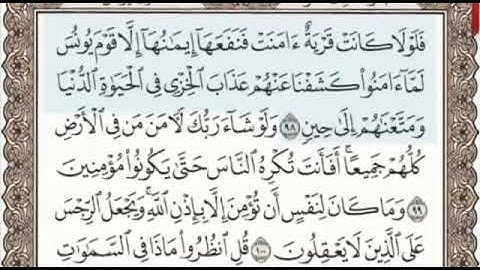 فَلَوْلَا كَانَتْ قَرْيَةٌ ءَامَنَتْ فَنَفَعَهَآ إِيمَٰنُهَآ إِلَّا قَوْمَ يُونُسَ
لَمَّآ ءَامَنُوا۟ كَشَفْنَا عَنْهُمْ عَذَابَ ٱلْخِزْىِ فِى ٱلْحَيَوٰةِ ٱلدُّنْيَا
وَمَتَّعْنَٰهُمْ إِلَىٰ حِينٍ ٩٨ وَلَوْ شَآءَ رَبُّكَ لَءَامَنَ مَن فِى ٱلْأَرْضِ
كُلُّهُمْ جَمِيعًا ۚ أَفَأَنتَ تُكْرِهُ ٱلنَّاسَ حَتَّىٰ يَكُونُوا۟ مُؤْمِنِينَ
٩٩ وَمَا كَانَ لِنَفْسٍ أَن تُؤْمِنَ إِلَّا بِإِذْنِ ٱللَّهِ ۚ وَيَجْعَلُ ٱلرِّجْسَ
عَلَى ٱلَّذِينَ لَا يَعْقِلُونَ ١٠٠ قُلِ ٱنظُرُوا۟ مَاذَا فِى ٱلسَّمَٰوَٰتِ